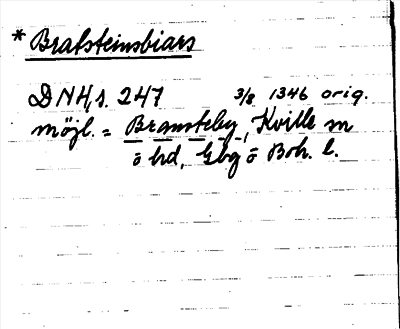 * Brafsteinsbiars
DN 4, s. 247 3/8 1346 orig.
möjl. = Bramsteby, Kville sn
ö hd, Gbg o Boh. l.